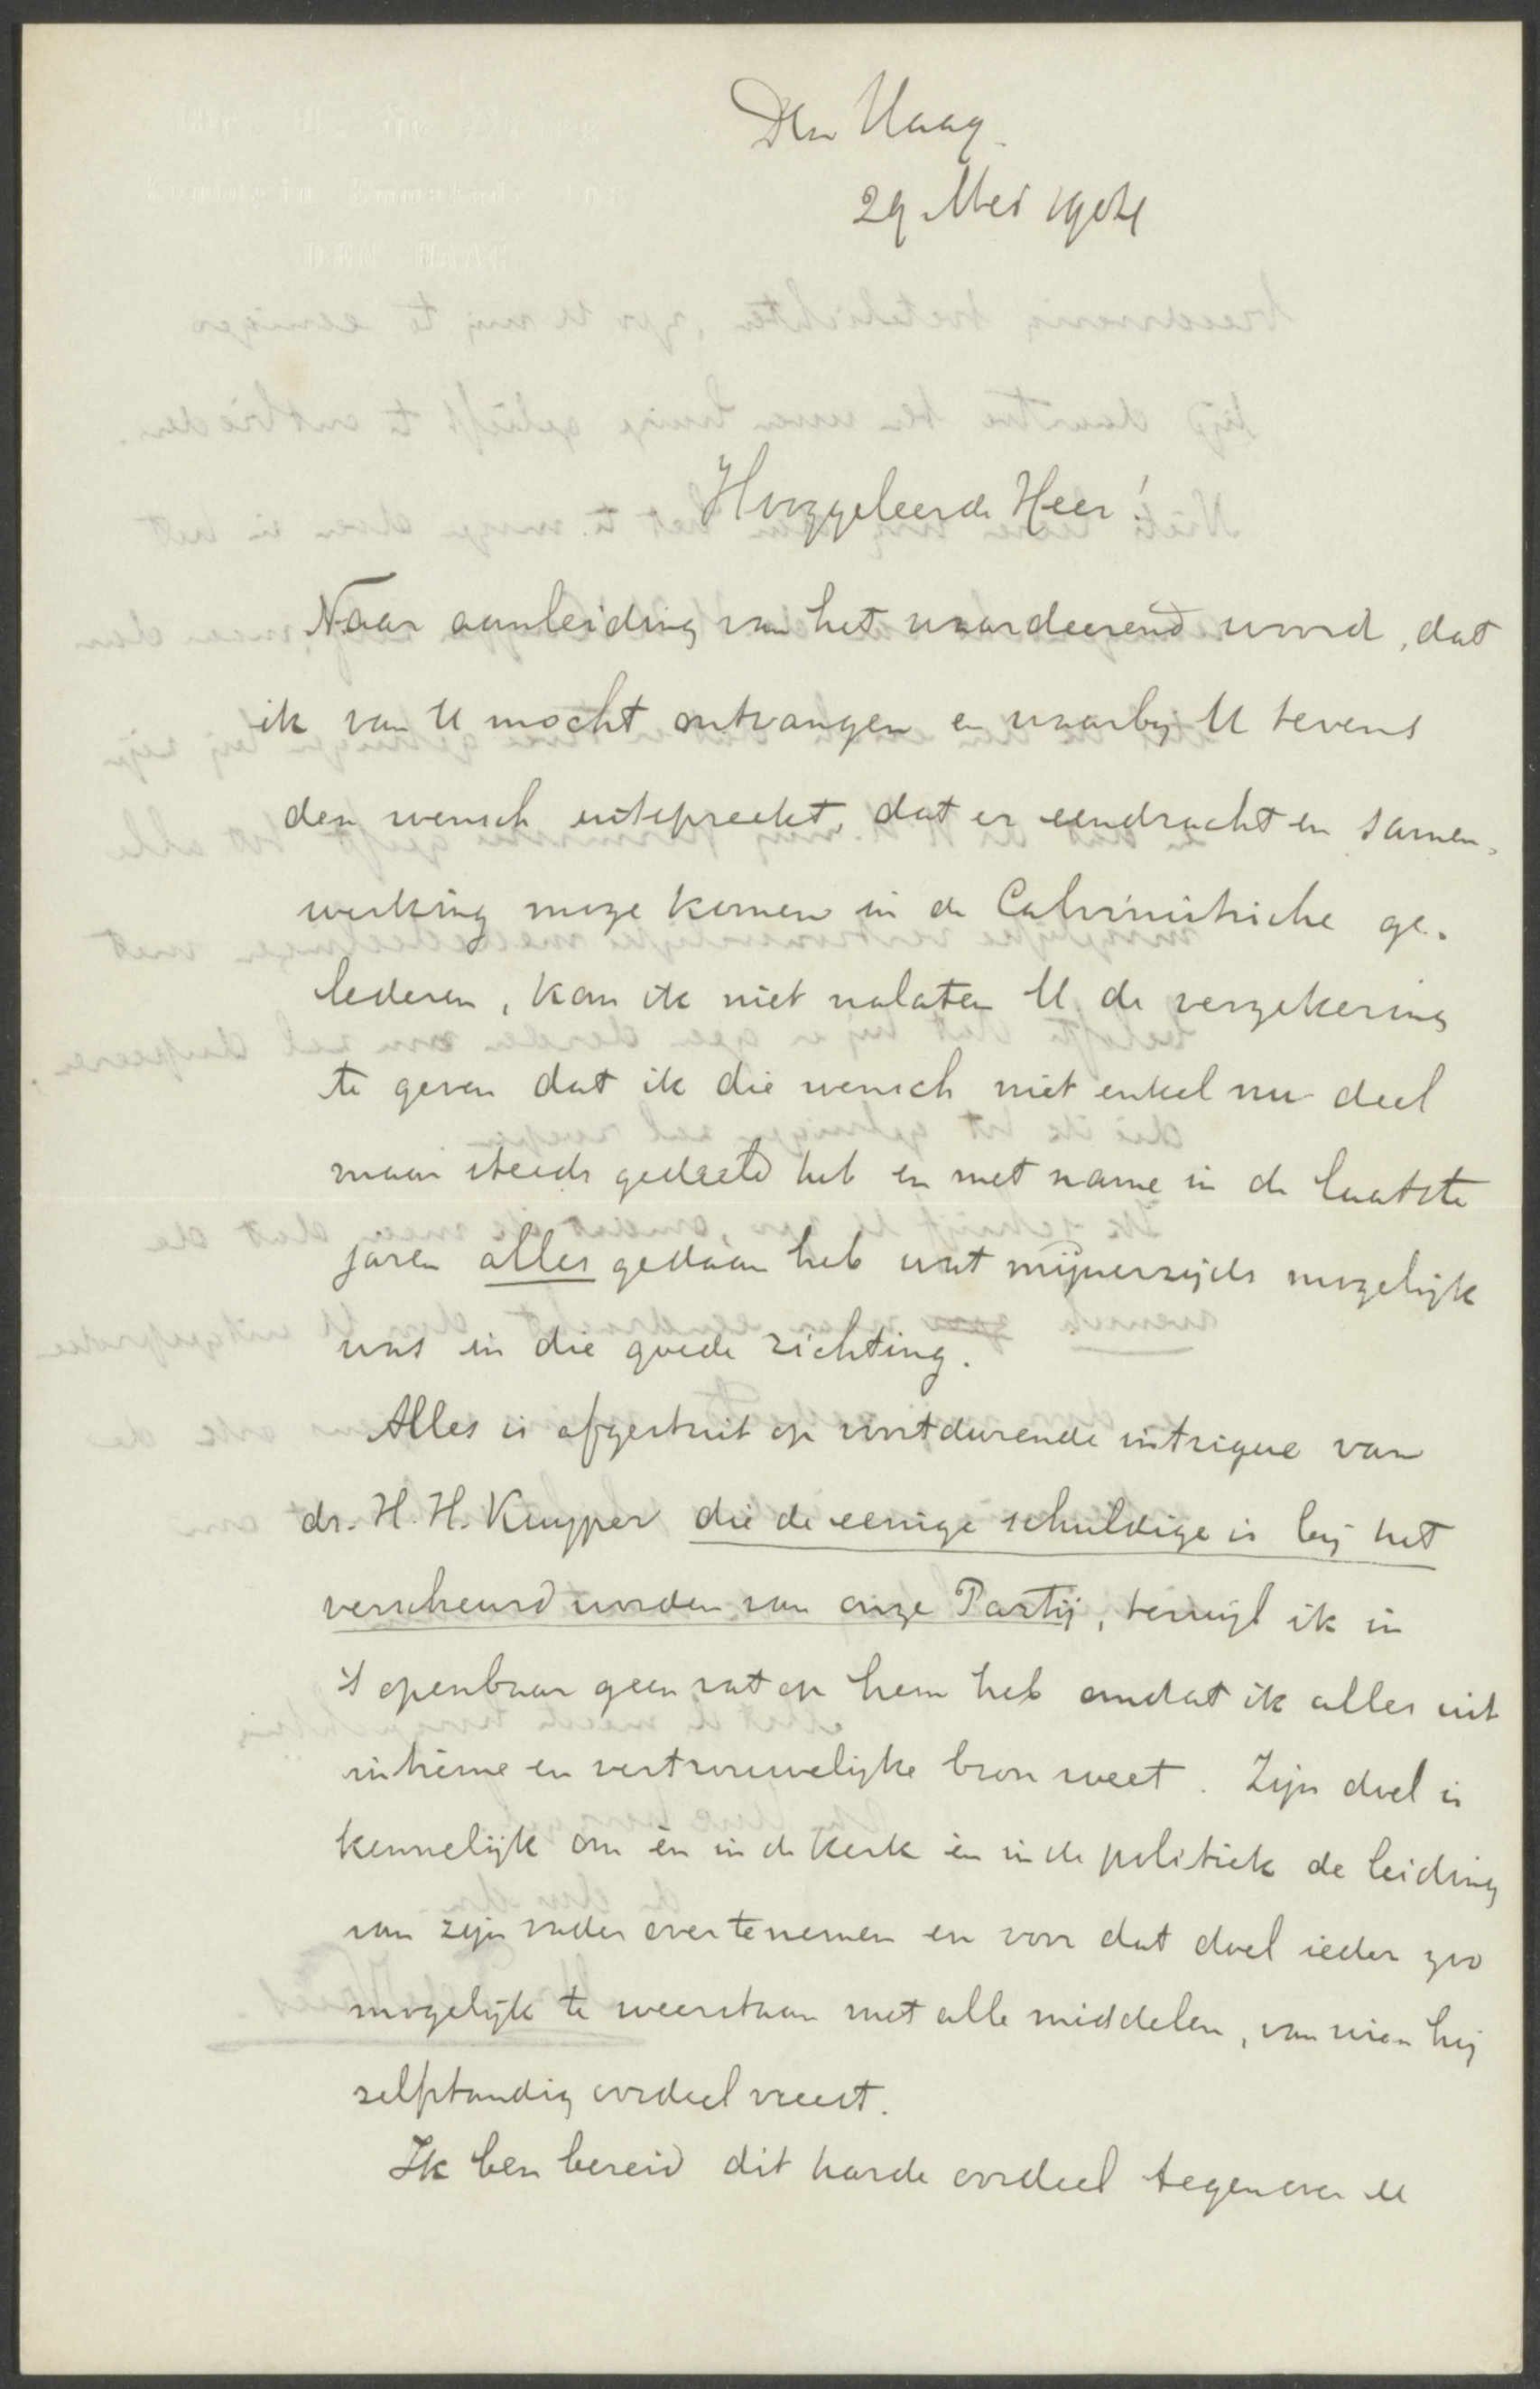 Den Haag
29 Mei 1904
Hooggeleerde Heer!
Naar aanleiding van het waardeerend woord, dat
ik van U mocht ontvangen en waarbij U tevens
den wensch uitspreekt, dat er eendracht en samen-
werking moge komen in de Calvinistische ge-
lederen, kan ik niet nalaten U de verzekering
te geven dat ik die wensch niet enkel nu deel
maar steeds gedeeld heb en met name in de laatste
jaren alles gedaan heb wat mijnerzijds mogelijk
was in die goede richting.
Alles is afgestuit op voortdurende intrigue van
dr. H. H. Kuyper die de eenige schuldige is bij het
verscheurd worden van onze Partij, terwijl ik in
't openbaar geen vat op hem heb omdat ik alles uit
intieme en vertrouwelijke bron weet. Zijn doel is
kennelijk om èn in de kerk èn in de politiek de leiding
van zijn vader overtenemen en voor dat doel ieder zoo
mogelijk te weerstaan met alle middelen, van wien hij
zelfstandig oordeel vreest.
Ik ben bereid dit harde oordeel tegenover U